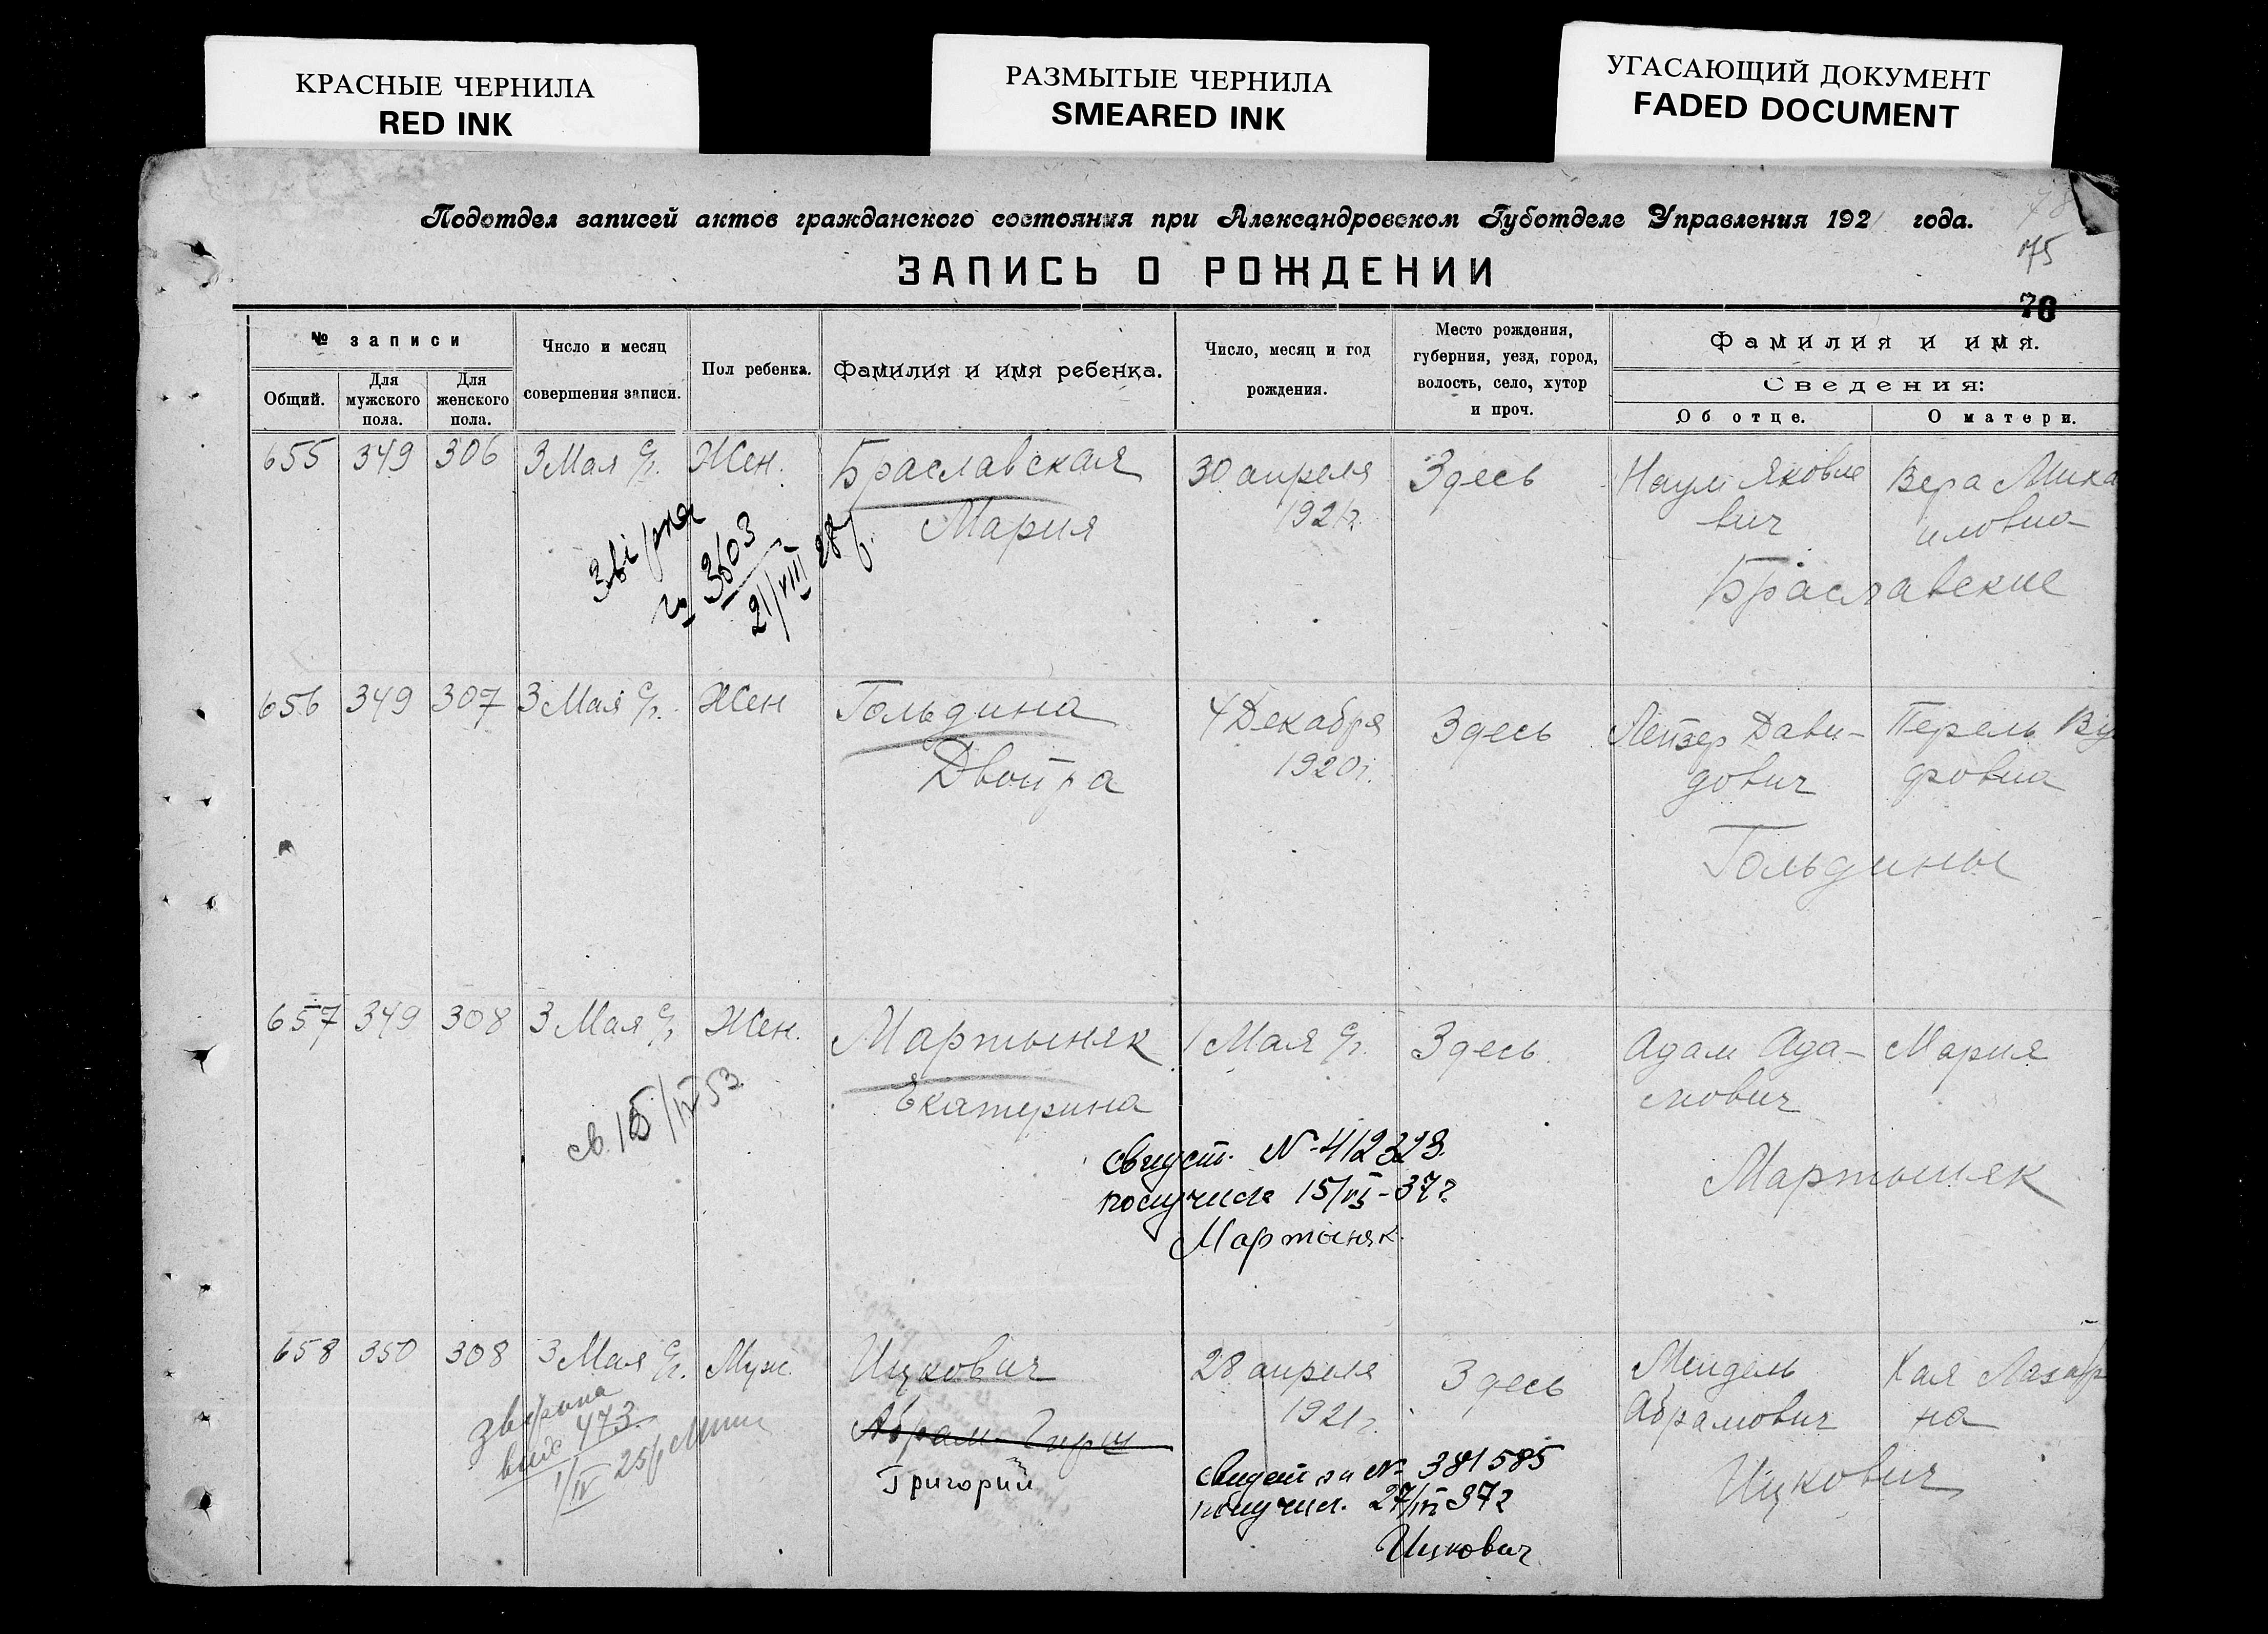 КРАСНЫЕ ЧЕРНИЛА
RED INK
РАЗМЫТЫЕ ЧЕРНИЛА
SMEARED INK
УГАСАЮЩИЙ ДОКУМЕНТ
FADED DOCUMENT
Подотдел записей актов гражданского состояния при Александровском Губотделе Управления 1921 года.
75
ЗАПИСЬ О РОЖДЕНИИ
76
№ записи
Общий.
Для мужского пола.
Для женского пола.
Число и месяц
совершения записи.
Пол ребенка.
Фамилия и имя ребенка.
Число, месяц и год
рождения.
Место рождения,
губерния, уезд, город,
волость, село, хутор
и проч.
Фамилия и имя.
Сведения:
Об отце.
О матери.
655 349 306 3 Мая с/г. Жен. Браславская 30 апреля Здесь Наум Яковле Вера Миха
Мария 1921г. вич иловна
Браславские
21/VIII 28
656 349 307 3 Мая с/г. Жен Гольдина 4 Декабря Здесь Лейзер Дави- Перель
Двойра 1920г. дович
Гольдины
657 349 308 3 Мая с/г. Жен. Мартыняк 1 Мая с/г. Здесь. Адам Ада- Мария
Екатерина мович
Мартыняк
св. /IV 53
свидет. N-412323.
получила 15/VI-37г.
Мартыняк.
658 350 308 3 Мая с/г. Муж. Ицкович 28 апреля Здесь Мендель Хая Лазар
Абрам-Гирш 1921г. Абрамович на
Григорий
Ицкович
473
свидет за N- 381585
получил. 27/VI 37г
Ицкович